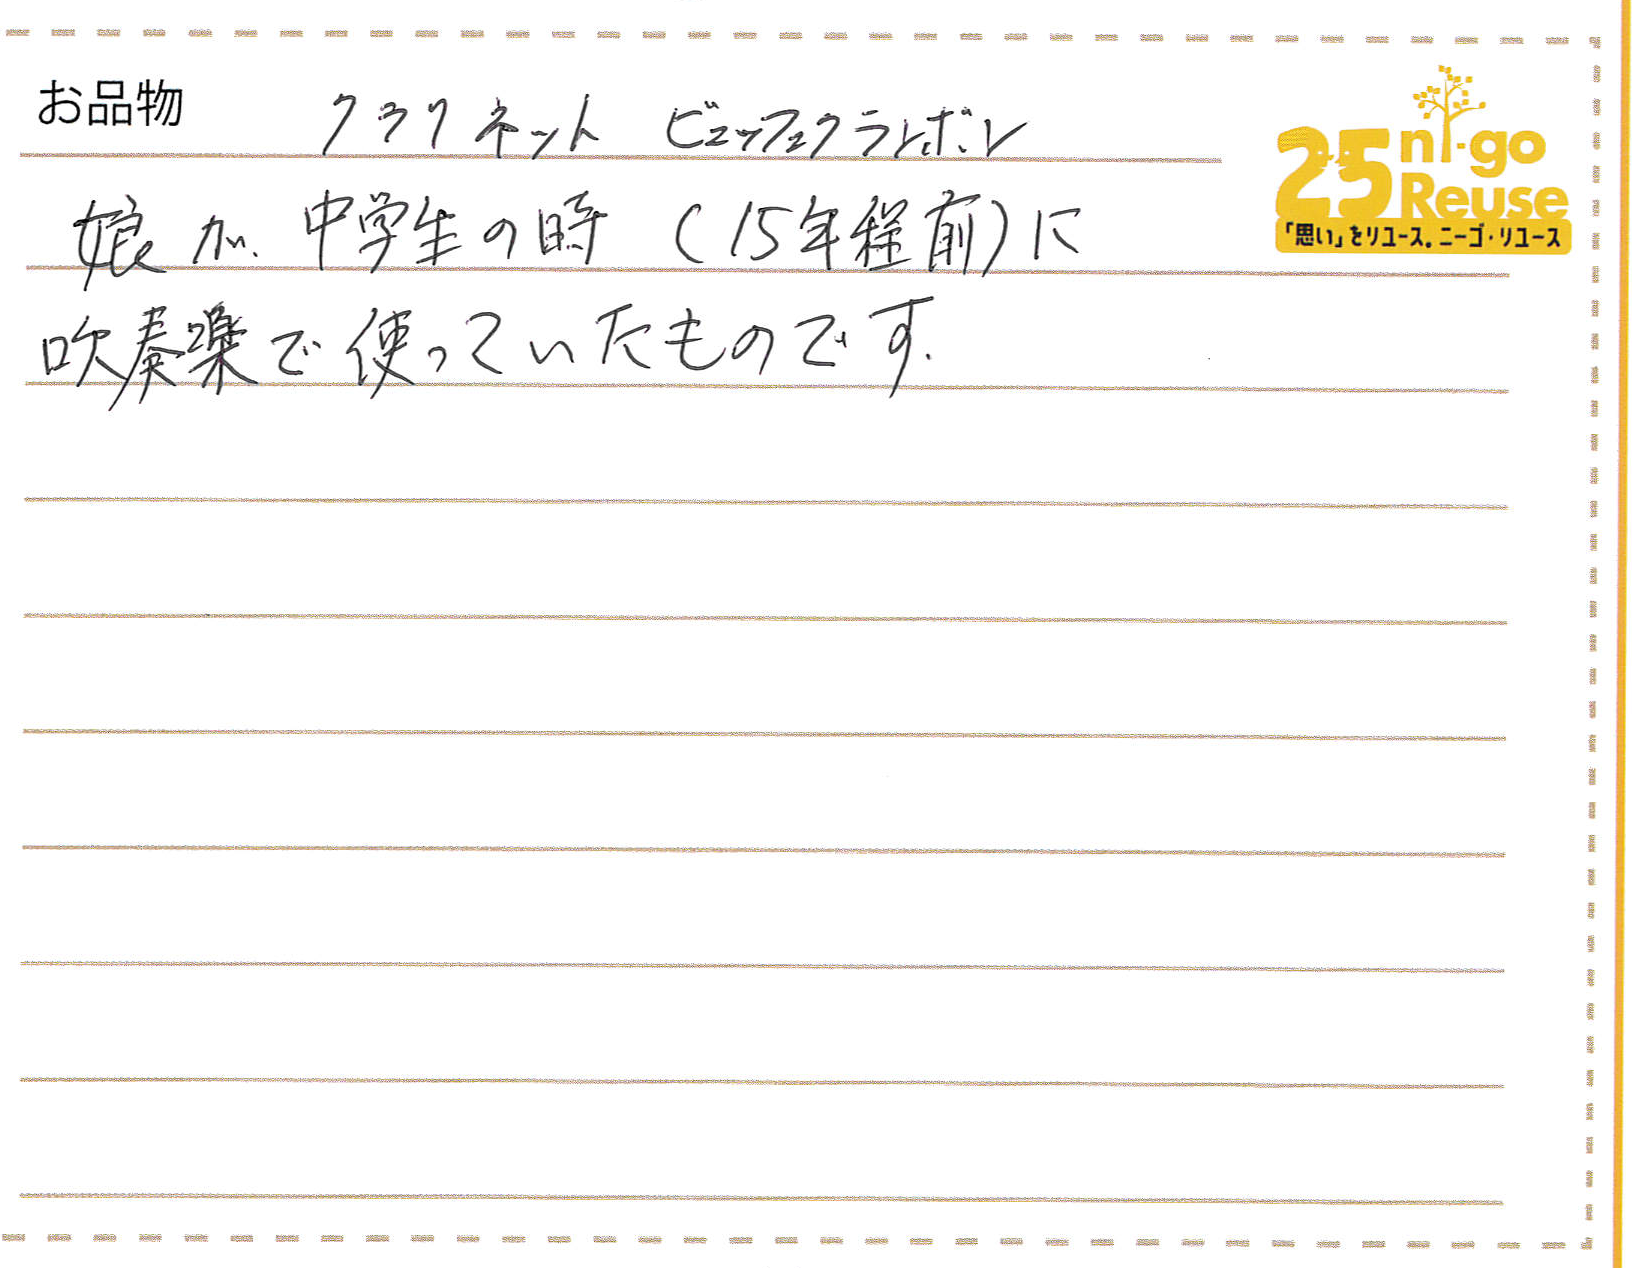 お品物 クラリネット ビュッフェクランポン
25 ni-go Reuse
「思い」をリユース。ニーゴ・リユース
娘が、中学生の時(15年程前)に
吹奏楽で使っていたものです。